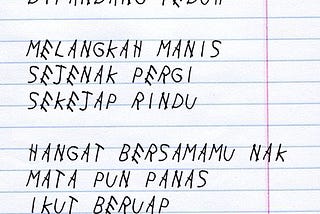 DIPANDANG TEDUH
MELANGKAH MANIS
SEJENAK PERGI
SEKEJAP RINDU
HANGAT BERSAMAMU NAK
MATA PUN PANAS
IKUT BERUAP